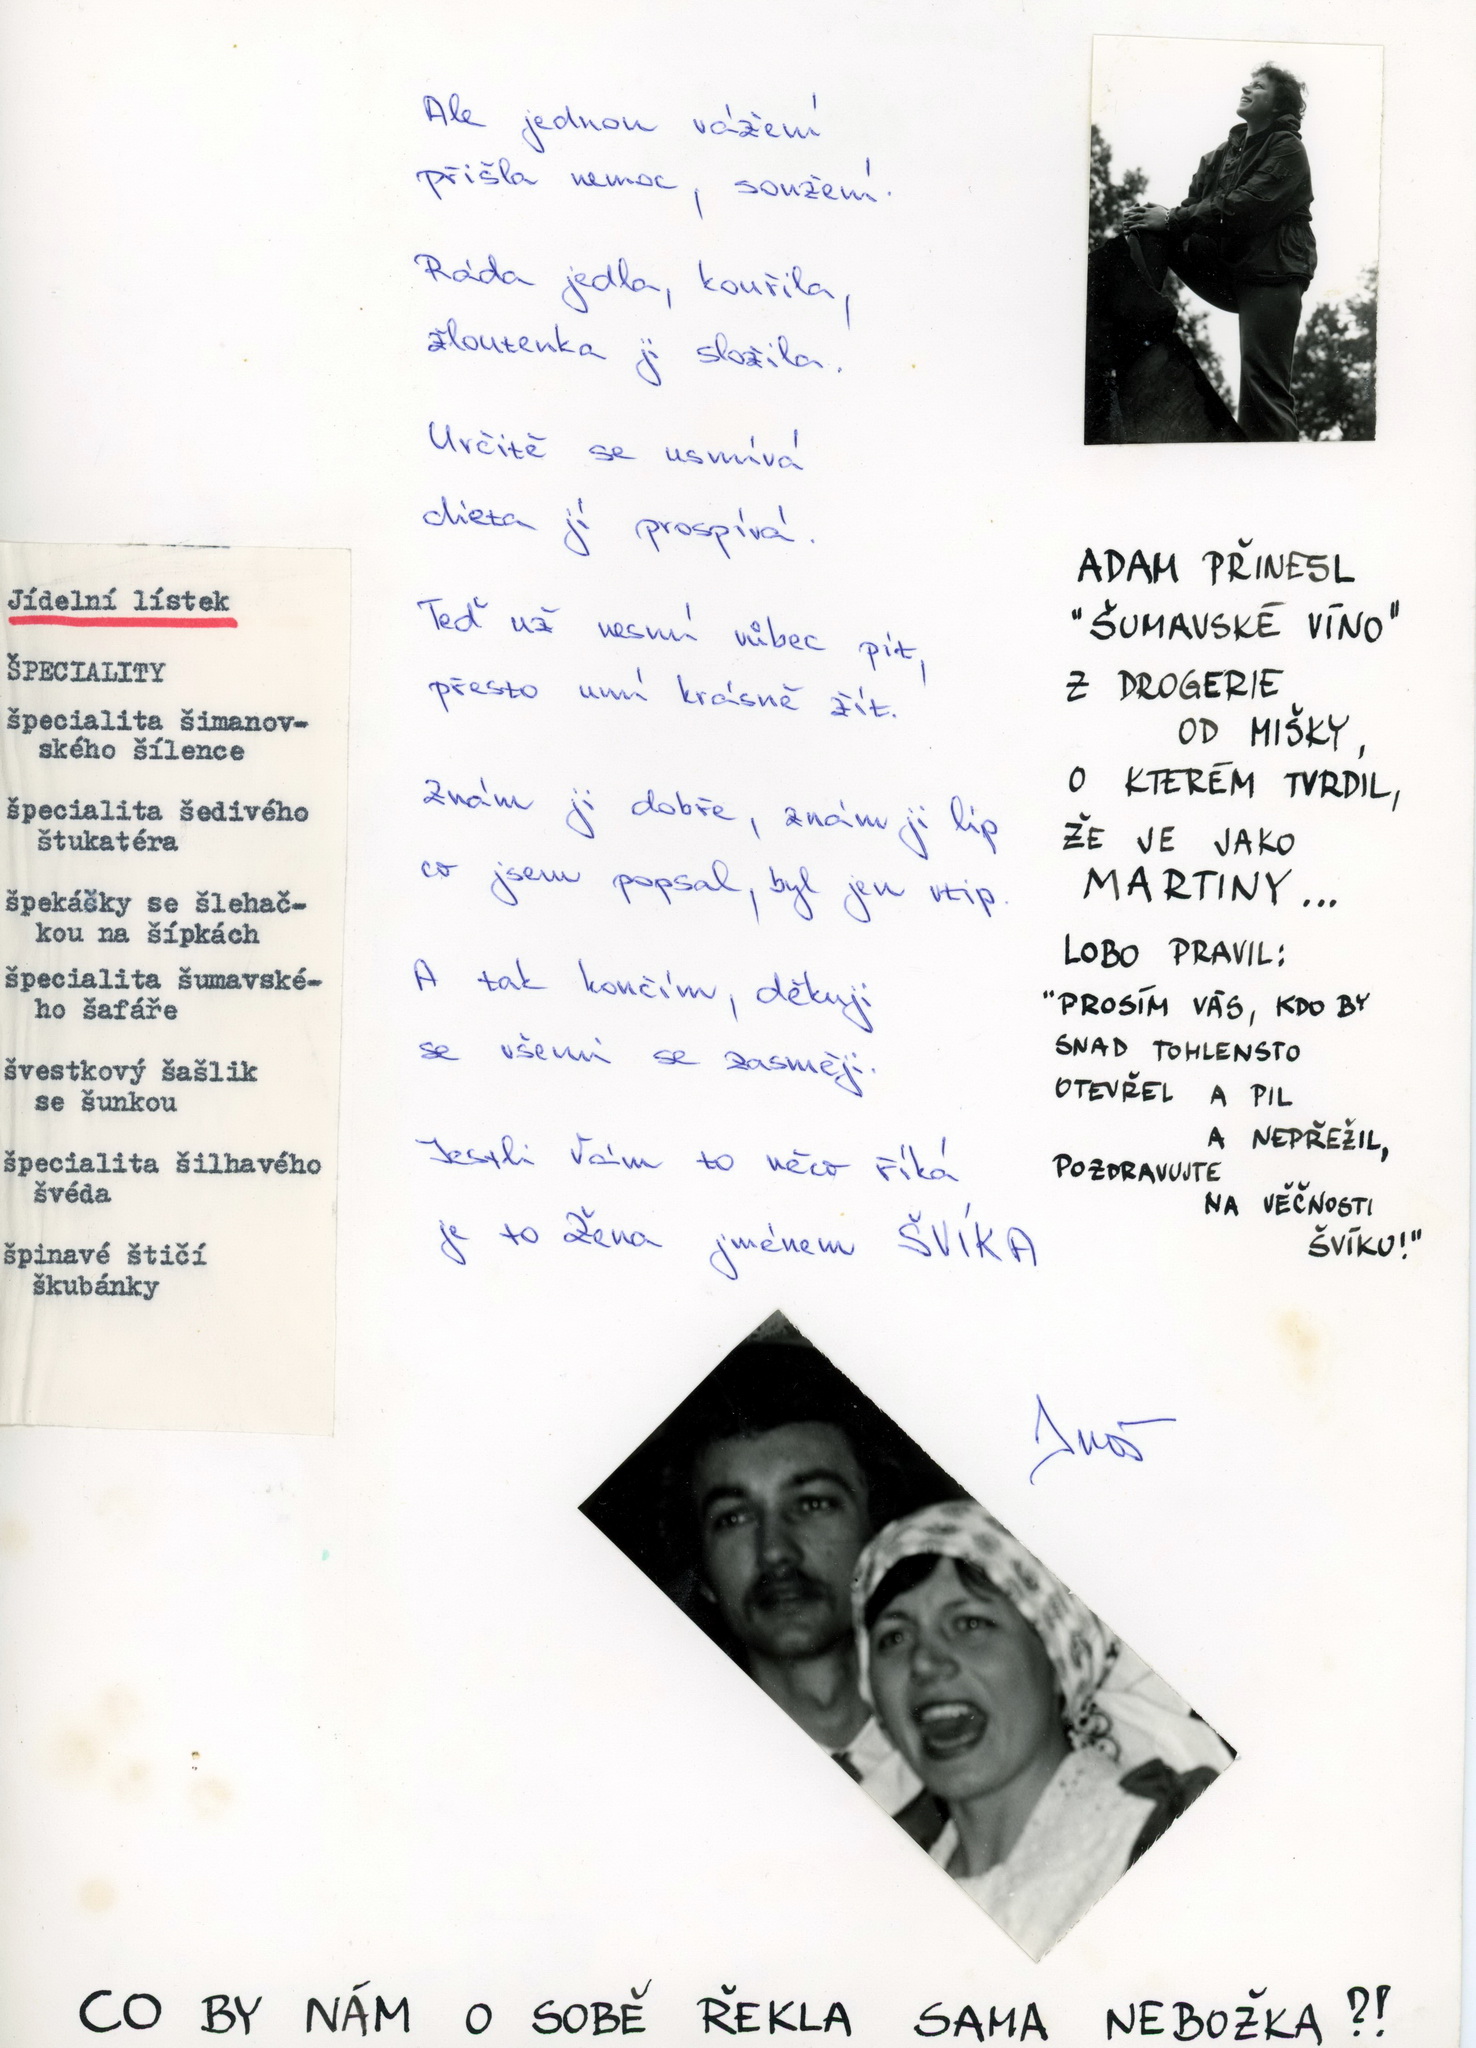 Ale jednou vážení
přišla nemoc, soužení.
Ráda jedla, kouřila,
žloutenka ji složila.
Určitě se usmívá
dieta jí prospívá.
Teď už nesmí vůbec pít,
přesto umí krásně žít.
Znám ji dobře, znám ji líp
co jsem popsal, byl jen vtip.
A tak končím, děkuji
se všemi se zasměji.
Jestli Vám to něco říká
je to žena jménem ŠVÍKA
Jídelní lístek
ŠPECIALITY
špecialita šimanov-
ského šílence
špecialita šedivého
štukatéra
špekáčky se šlehač-
kou na šípkách
špecialita šumavské-
ho šafáře
švestkový šašlik
se šunkou
špecialita šilhavého
švéda
špinavé štičí
škubánky
ADAM PŘINESL
"ŠUMAVSKÉ VÍNO"
Z DROGERIE
OD MIŠKY,
O KTERÉM TVRDIL,
ŽE JE JAKO
MARTINY...
LOBO PRAVIL:
"PROSÍM VÁS, KDO BY
SNAD TOHLENSTO
OTEVŘEL A PIL
A NEPŘEŽIL,
POZDRAVUJTE
NA VĚČNOSTI
ŠVÍKU!"
CO BY NÁM O SOBĚ ŘEKLA SAMA NEBOŽKA?!